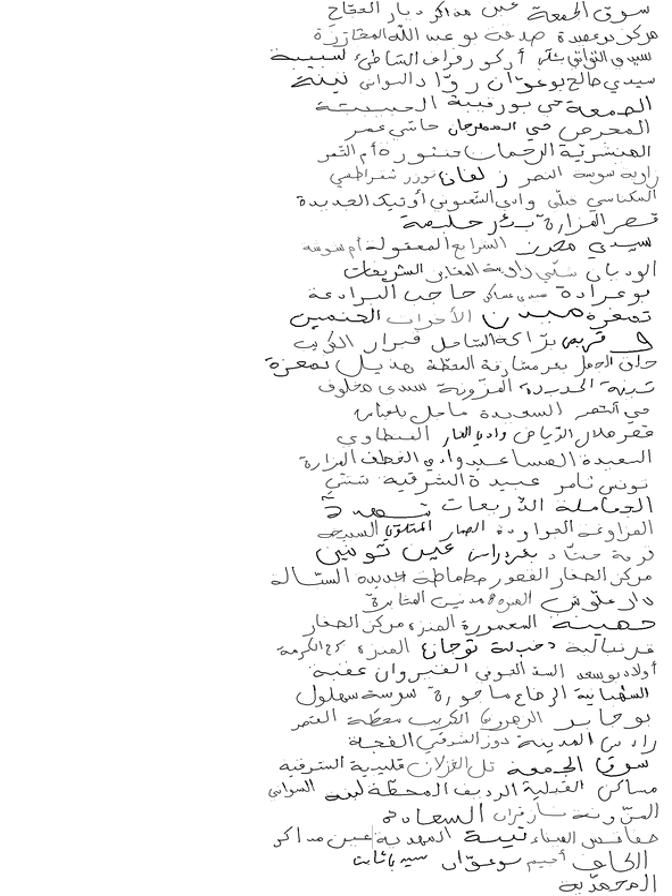 سوق الجمعة عين مذاكر ديار الحجّاج
مركز بوعصيدة صدقة بو عبد الله المغازرة
سيدي التواتي أركو رفراف الشاطئ سبيبة
سيدي صالح بوعوّان روّاد البواني تينة
الصمعة حي بورقيبة الحبيبيّة
المعرض حي المهرجان حاسي عمر
الهنشريّة الرحمات منشورة أم التمر
زاوية سوسة النصر زلفان توزر شقراطسي
المكناسي قبلّي وادي الشعبوني أوتيك الجديدة
قصر المزارة بئر حليمة
سيدي محرز الشرايع المعقولة أم شوشة
الوديان شنّي زاوية المغاير الشريفات
بوعرادة سيدي عساكر حاجب البرادعة
تمغزة ميدن الأحراث الحنمين
و قربص برّاكة الساحل قبرار الكريب
خزان الجمل بئر مشارقة المحطّة هذيل تمغزة
تبينة الحديدة المزّونة سيدي مخلوف
حي النصر السعيدة ماجل بلعباس
قصر هلال الرياض وادي الغار القنطاوي
السعيدة المساعيد وادي الخطف المزارة
تونس ثامر عبيدة الشرقية شنني
الجماملة الذريعات شهدة
المزاوغة الجواودة الصمار المتلوي السبيخة
قرية حشّاد بقرداس عين تونين
مركز الصفار القصور مطماطة الجديدة الستّالة
دار علّوش المنزه مدنين المثابرة
جهينة المعمورة المنزه مركز الصفار
قرنبالية دخيلة توجان المنزه كرم الكرمة
أولاد بوسعد السند الجنوبي القيروان عقبة
السلهبانية الرضاع ماجورة سوسة سهلول
بوجابر الزهروني الكريب محطّة القصر
رادس المدينة دوز الشرقي الفجة
سوق الجمعة تل الغزلان قليبية الشرقية
مساكن القبلية الرديف المحطّة لبنة السواسي
المزّونة سار فران السعادة
صفاقس الميناء تينة المهدية عين مذاكر
الكاف أميم بوعوّان سيدي ثابت
المحمّدية